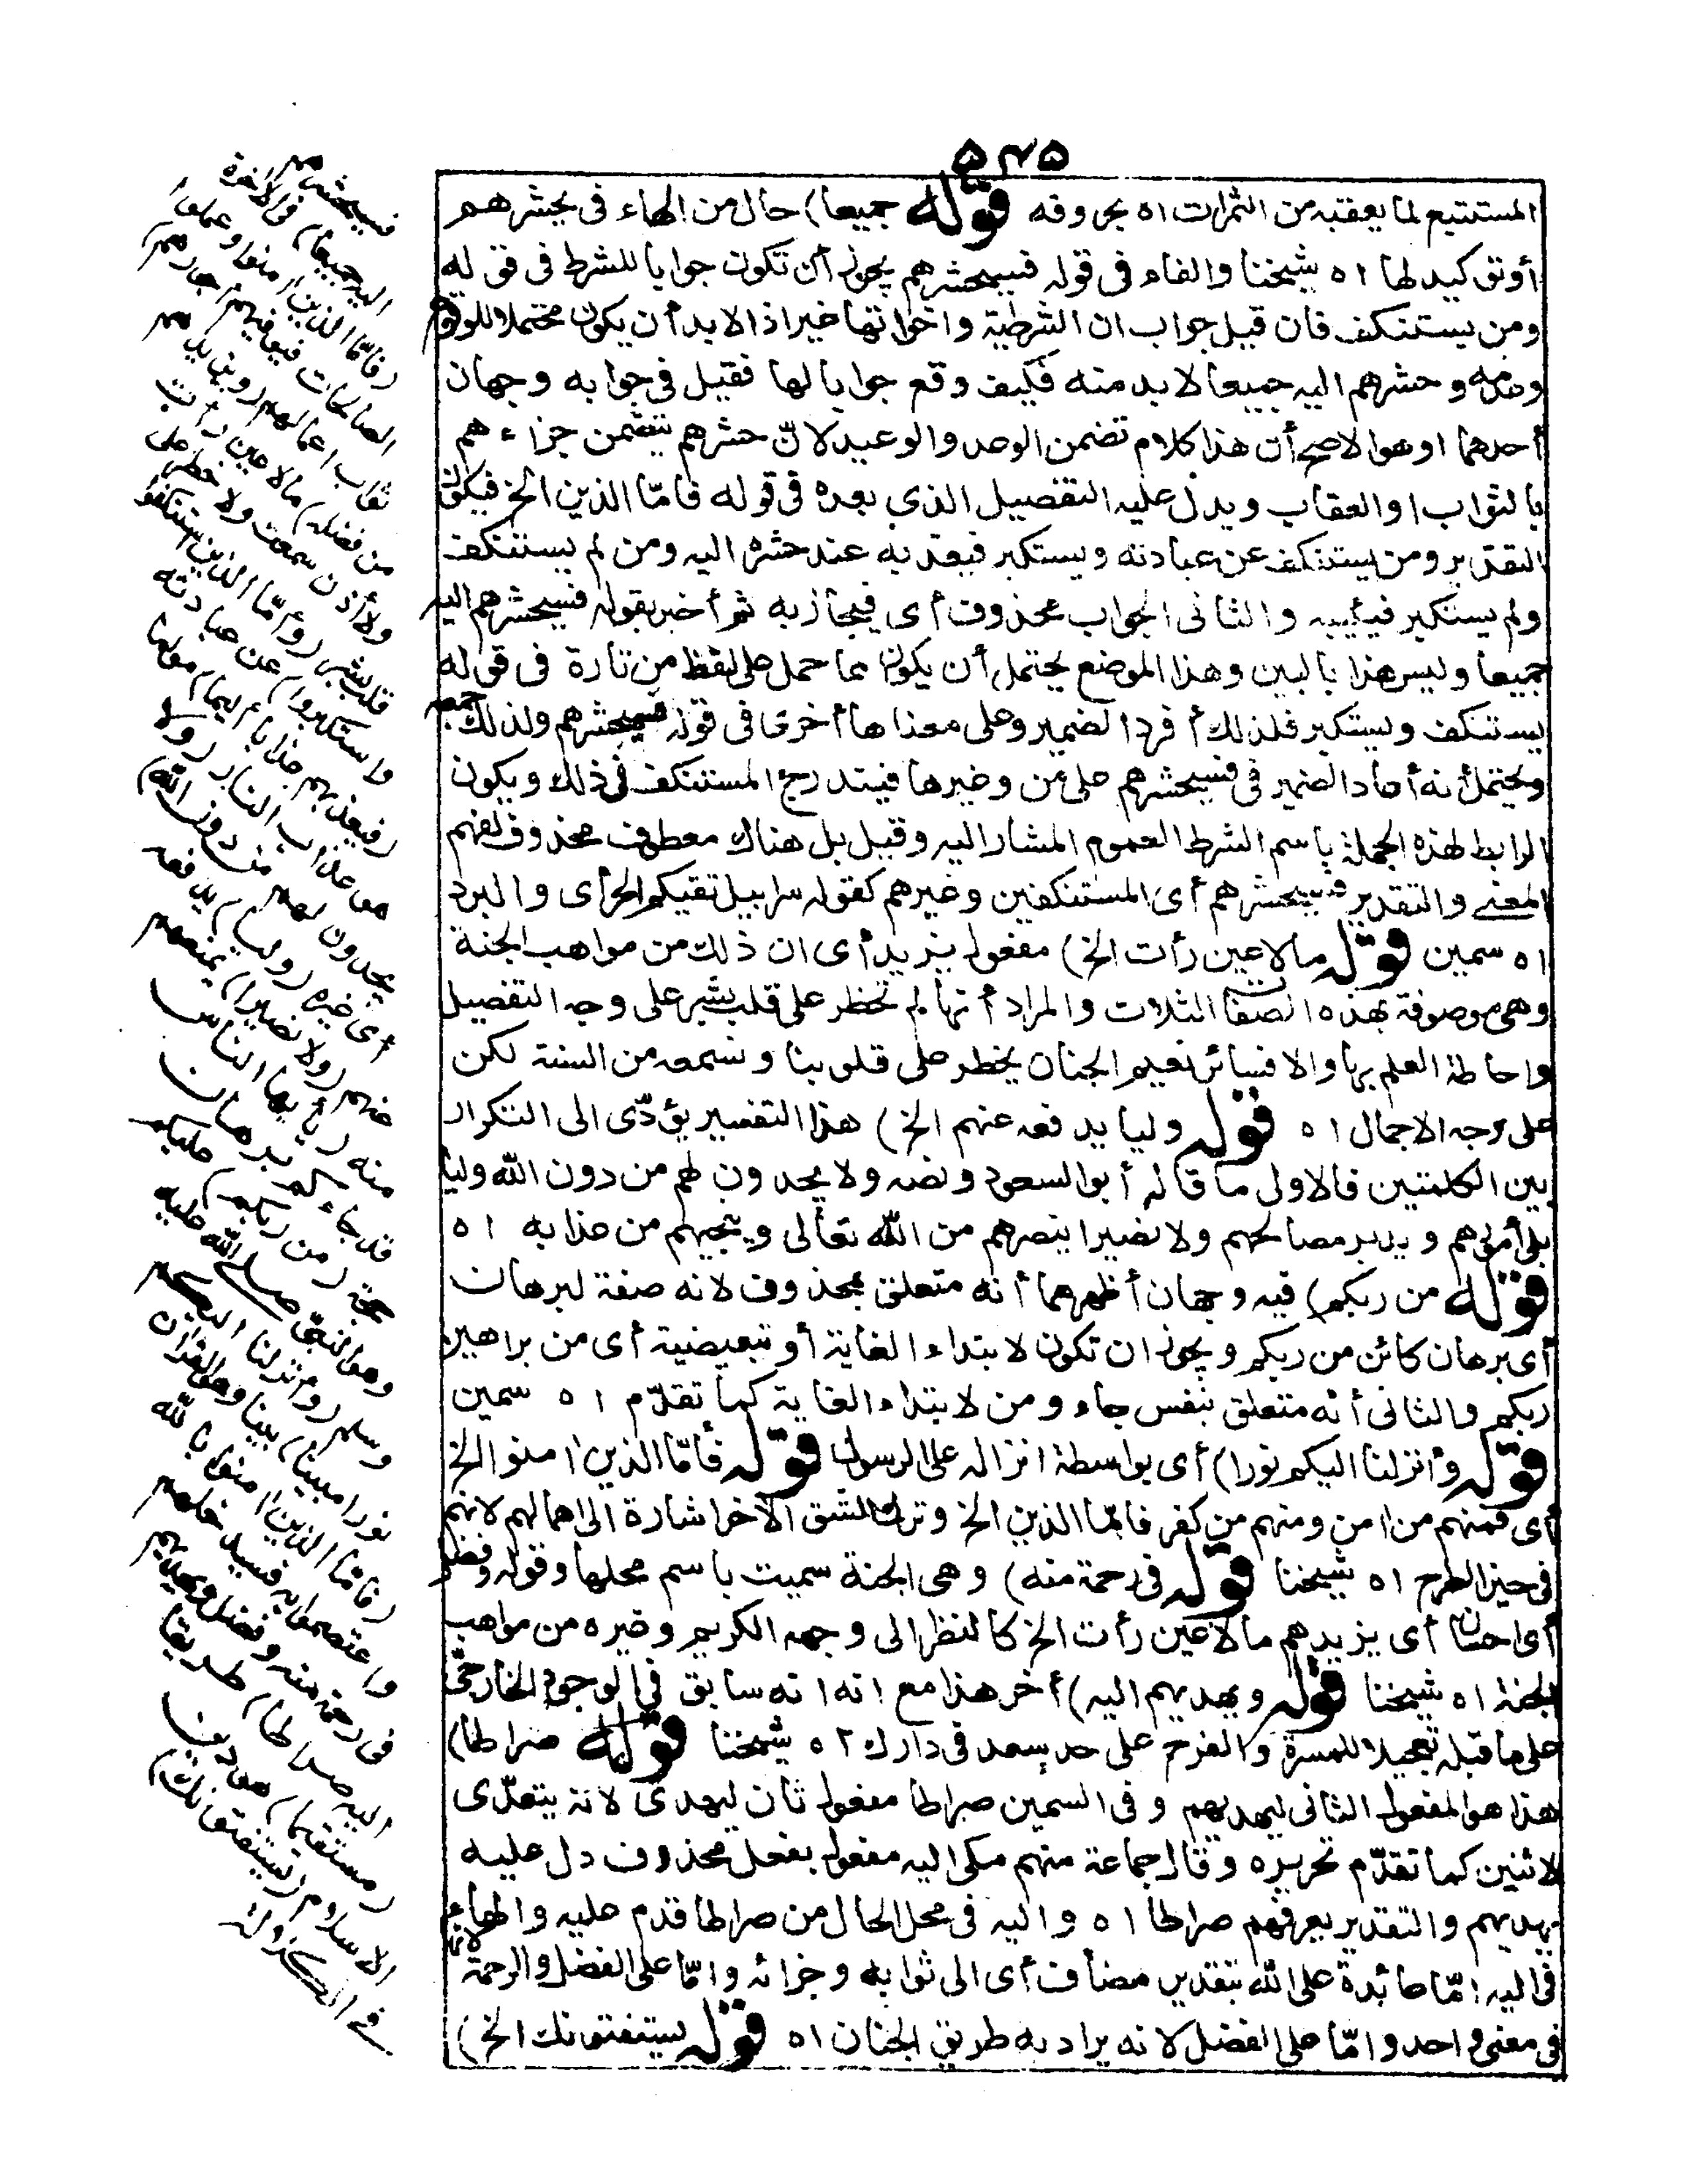 ٥٤٥
المستتبع لما يعقبه من الثمرات اه بحروفه قوله جميعا) حال من الهاء فى يحشرهم
أو توكيد لها اه شيخنا والفاء فى قوله فسيحشرهم يجوز أن تكون جوابا للشرط فى قوله
ومن يستنكف فان قيل جواب ان الشرطية واخواتها غير اذا لا بد أن يكون محتملا للوقوع
وعدمه وحشرهم اليه جميعا لا بد منه فكيف وقع جوابا لها فقيل فى جوابه وجهان
أحدهما وهو الاصح أن هذا كلام تضمن الوعد والوعيد لانّ حشرهم يتضمن جزاءهم
بالثواب او العقاب ويدل عليه التفصيل الذي بعده فى قوله فامّا الذين الخ فيكون
التقدير ومن يستنكف عن عبادته ويستكبر فيعذبه عند حشره اليه ومن لم يستنكف
ولم يستكبر فيثيبه والثانى الجواب محذوف أى فيجازيه ثم أخبر بقوله فسيحشرهم اليه
جميعا وليس هذا بالبين وهذا الموضع يحتمل أن يكون مما حمل على لفظ من تارة فى قوله
يستنكف ويستكبر فلذلك أفرد الضمير وعلى معناها أخرى فى قوله فسيحشرهم ولذلك جمعه
ويحتمل أنه أعاد الضمير فى فسيحشرهم على من وغيرها فيندرج المستنكف فى ذلك ويكون
الرابط لهذه الجملة باسم الشرط العموم المشار اليه وقيل بل هناك معطوف محذوف لفهم
المعنى والتقدير فسيحشرهم أى المستنكفين وغيرهم كقوله سرابيل تقيكم الحر أى والبرد
اه سمين قوله ما لا عين رأت الخ) مفعول يزيد أى ان ذلك من مواهب الجنة
وهى موصوفة بهذه الصفات الثلاث والمراد أنها لم تخطر على قلب بشر على وجه التفصيل
واحاطة العلم بها والا فسائر نعيم الجنان يخطر على قلوبنا ونسمعه من السنة لكن
على وجه الاجمال اه قوله وليا يدفعه عنهم الخ) هذا التفسير يؤدّى الى التكرار
بين الكلمتين فالاولى ما قاله أبو السعود ونصه ولا يجدون لهم من دون الله وليا
يلى أمورهم ويدبر مصالحهم ولا نصيرا ينصرهم من الله تعالى وينجيهم من عذابه اه
قوله من ربكم) فيه وجهان أظهرهما أنه متعلق بمحذوف لانه صفة لبرهان
أى برهان كائن من ربكم ويجوز ان تكون لابتداء الغاية أو تبعيضية أى من براهين
ربكم والثانى أنه متعلق بنفس جاء ومن لابتداء الغاية كما تقدّم اه سمين
قوله وأنزلنا اليكم نورا) أى بواسطة انزاله على الرسول قوله فأمّا الذين امنوا الخ
أى فمنهم من امن ومنهم من كفر فامّا الذين الخ وترك الشق الاخر اشارة الى اهمالهم لانهم
فى حيز الطرح اه شيخنا قوله فى رحمة منه) وهى الجنة سميت باسم محلها وقوله وفضل
أى احسان أى يزيدهم ما لا عين رأت الخ كالنظر الى وجهه الكريم وغيره من مواهب
الجنة اه شيخنا قوله ويهديهم اليه) أخر هذا مع انه سابق فى الوجود الخارجى
على ما قبله تعجيلا للمسرة والفرح على حد سعد فى دارك اه شيخنا قوله صراطا)
هذا هو المفعول الثانى ليهديهم وفى السمين صراطا مفعول ثان ليهدى لانه يتعدّى
لاثنين كما تقدّم تحريره وقال جماعة منهم مكى اليه مفعول بفعل محذوف دل عليه
يهديهم والتقدير يعرفهم صراطا اه واليه فى محل الحال من صراطا قدم عليه والهاء
فى اليه امّا عائدة على الله بتقدير مضاف أى الى ثوابه وجزائه وامّا على الفضل والرحمة لانهما
فى معنى واحد وامّا على الفضل لانه يراد به طريق الجنان اه قوله يستفتونك الخ)
فسيحشرهم
اليه جميعا) فى الاخرة
(فامّا الذين امنوا وعملوا
الصالحات فيوفيهم أجورهم)
ثواب اعمالهم (ويزيدهم
من فضله) ما لا عين رأت
ولا أذن سمعت ولا خطر على
قلب بشر (وأمّا الذين استنكفوا
واستكبروا) عن عبادته
(فيعذبهم عذابا أليما) مؤلما
هو عذاب النار (ولا
يجدون لهم من دون الله)
أى غيره (وليا) يدفعه
عنهم (ولا نصيرا) يمنعهم
منه (يأيها الناس
قد جاءكم برهان)
حجة (من ربكم) عليكم
وهو النبى صلى الله عليه
وسلم (وأنزلنا اليكم
نورا مبينا) بينا وهو القرآن
(فأمّا الذين امنوا بالله
واعتصموا به فسيدخلهم
فى رحمة منه وفضل ويهديهم
اليه صراطا) طريقا
(مستقيما) هو دين
الاسلام (يستفتونك)
فى الكلالة